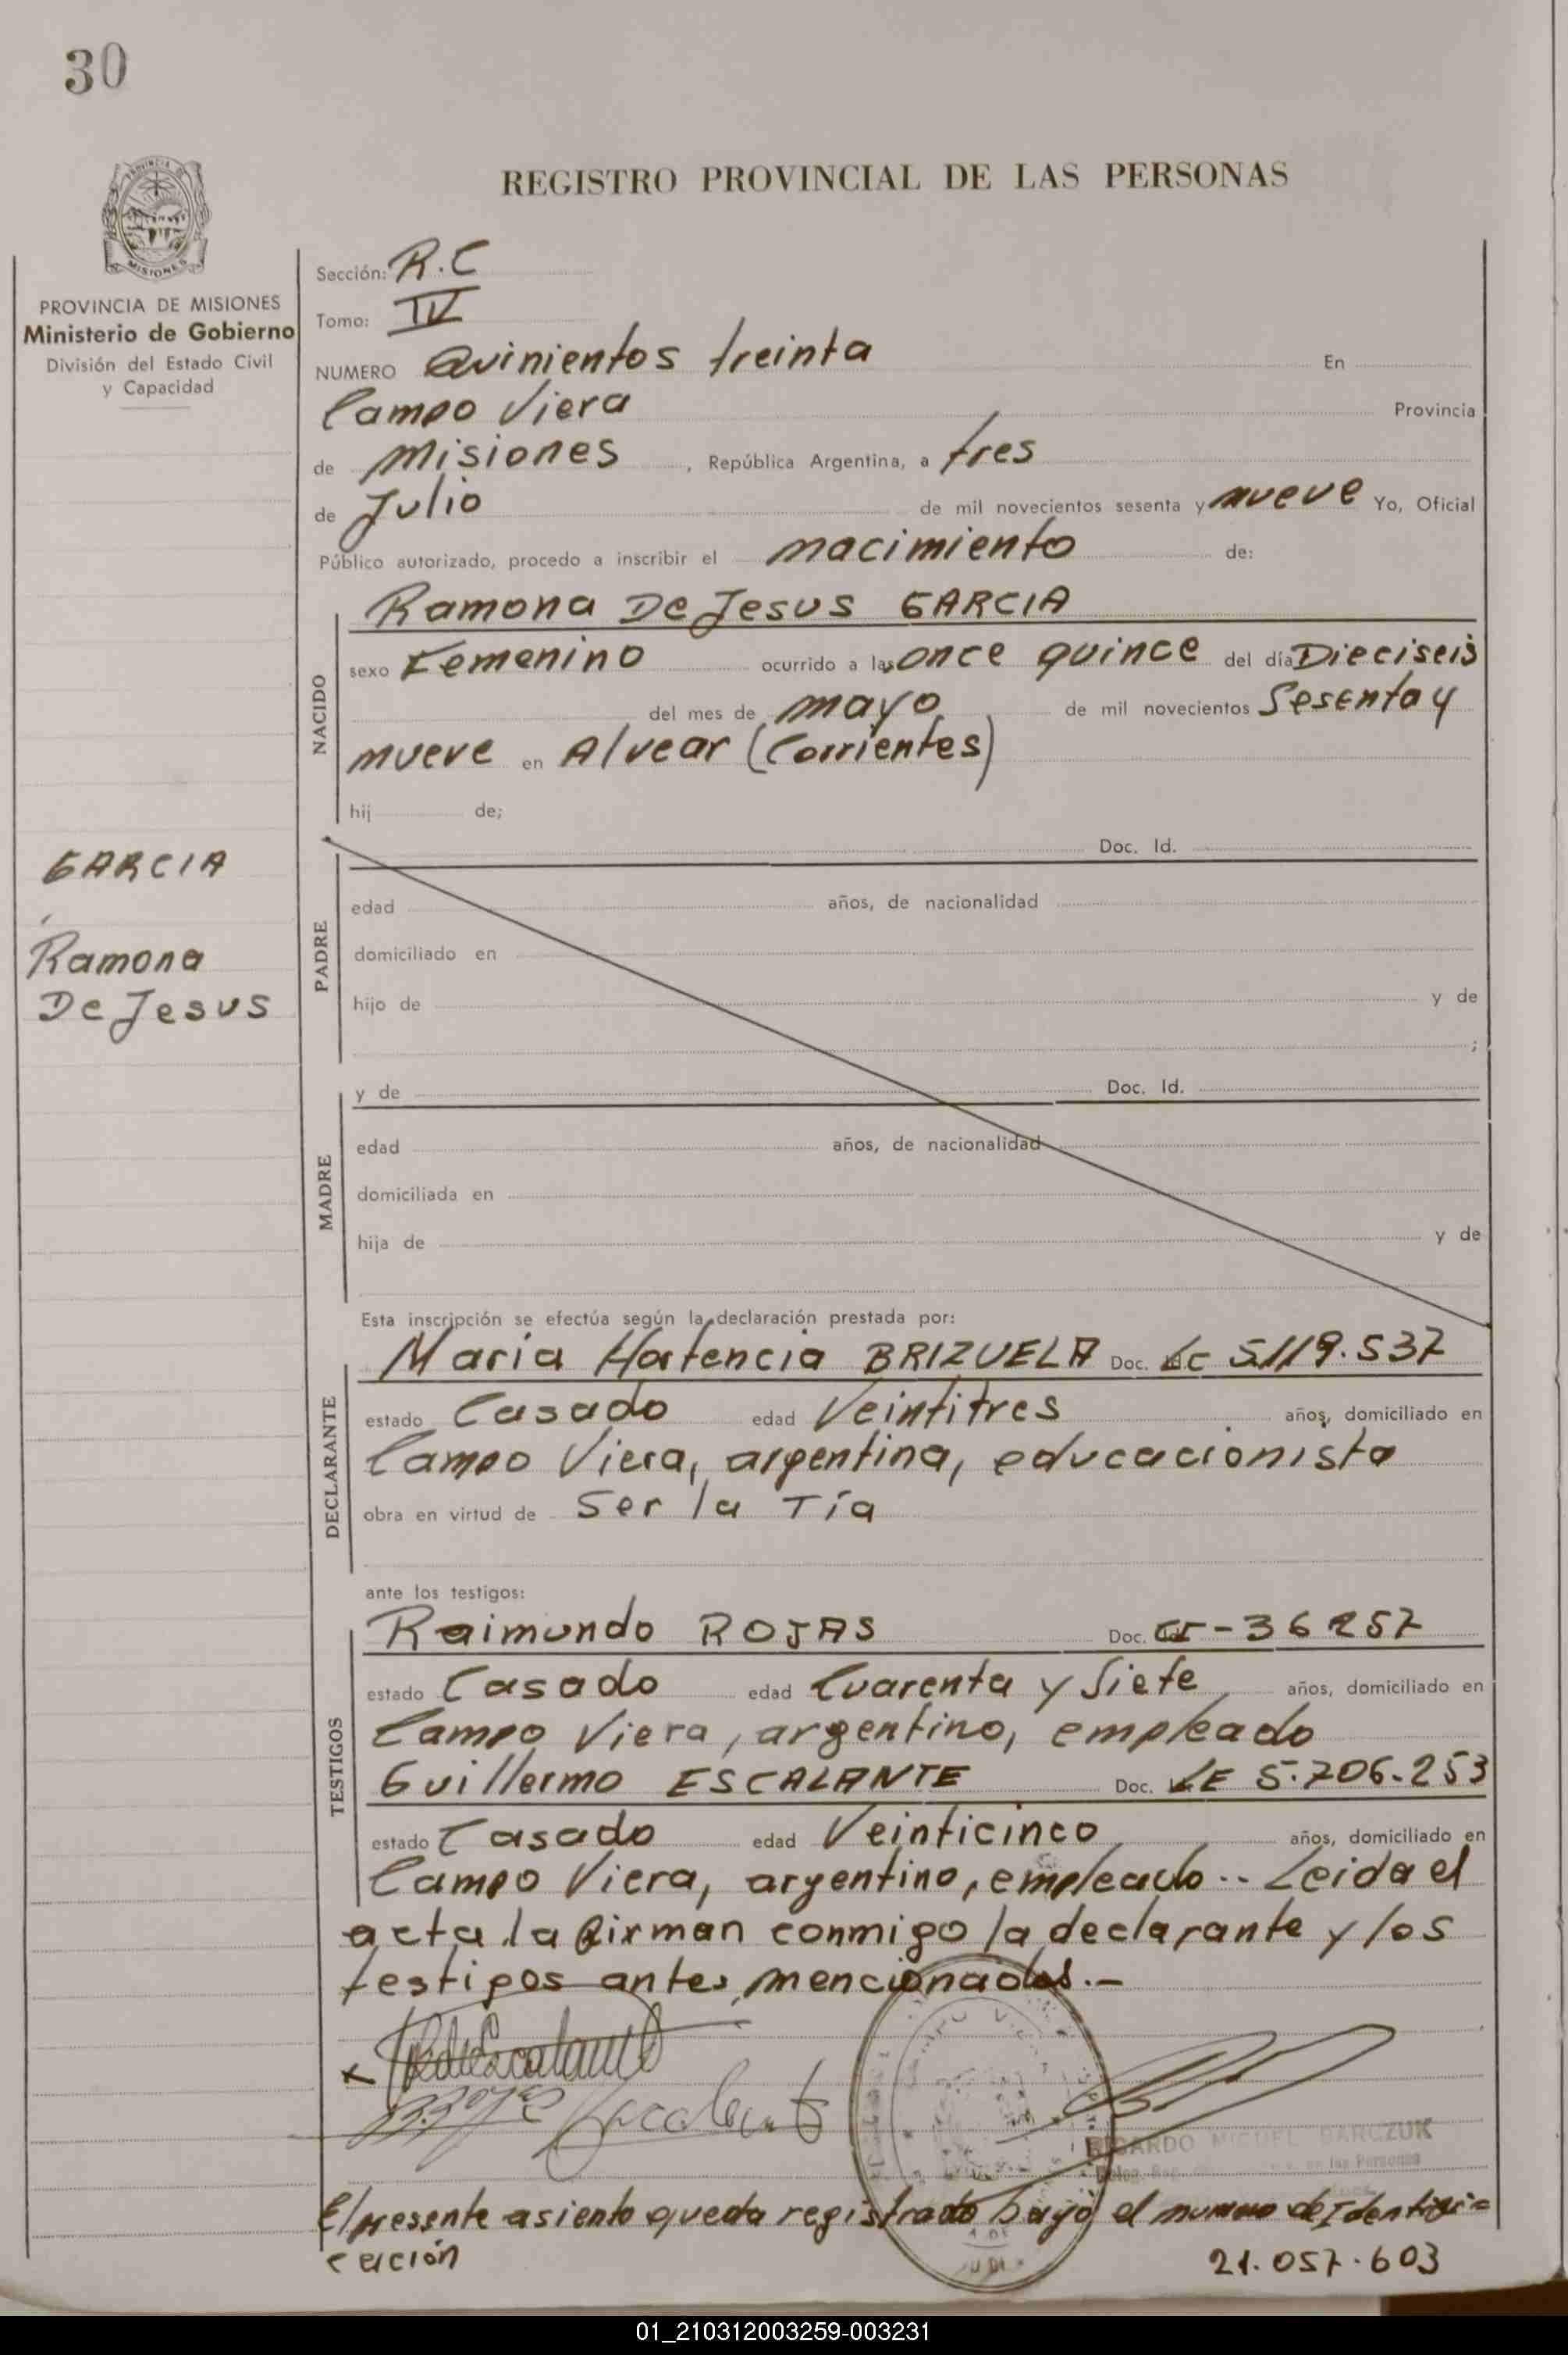 30
REGISTRO PROVINCIAL DE LAS PERSONAS
PROVINCIA DE MISIONES
Ministerio de Gobierno
División del Estado Civil
y Capacidad
Sección: R.C
Tomo: IV
NUMERO Quinientos treinta En
Campo Viera Provincia
de Misiones, República Argentina, a tres
de Julio de mil novecientos sesenta y nueve Yo, Oficial
Público autorizado, procedo a inscribir el nacimiento de:
NACIDO
Ramona De Jesus GARCIA
sexo Femenino ocurrido a las once quince del día Dieciseis
del mes de mayo de mil novecientos Sesenta y
nueve en Alvear (Corrientes)
hij de;
GARCIA
Ramona
De Jesus
PADRE
Doc. Id.
edad años, de nacionalidad
domiciliado en
hijo de y de
;
MADRE
y de Doc. Id.
edad años, de nacionalidad
domiciliada en
hija de y de
Esta inscripción se efectúa según la declaración prestada por:
DECLARANTE
Maria Hortencia BRIZUELA Doc. LC 5.119.537
estado Casado edad Veintitres años, domiciliado en
Campo Viera, argentina, educacionista
obra en virtud de Ser la Tía
ante los testigos:
TESTIGOS
Raimundo ROJAS Doc. -36257
estado Casado edad Cuarenta y Siete años, domiciliado en
Campo Viera, argentino, empleado
Guillermo ESCALANTE Doc. LE 5.706.253
estado Casado edad Veinticinco años, domiciliado en
Campo Viera, argentino, empleado.- Leida el
acta la firman conmigo la declarante y los
testigos antes mencionados.-
RICARDO MIGUEL BARCZUK
El presente asiento queda registrado bajo el numero de Identifi=
cación 21.057.603
01_210312003259-003231